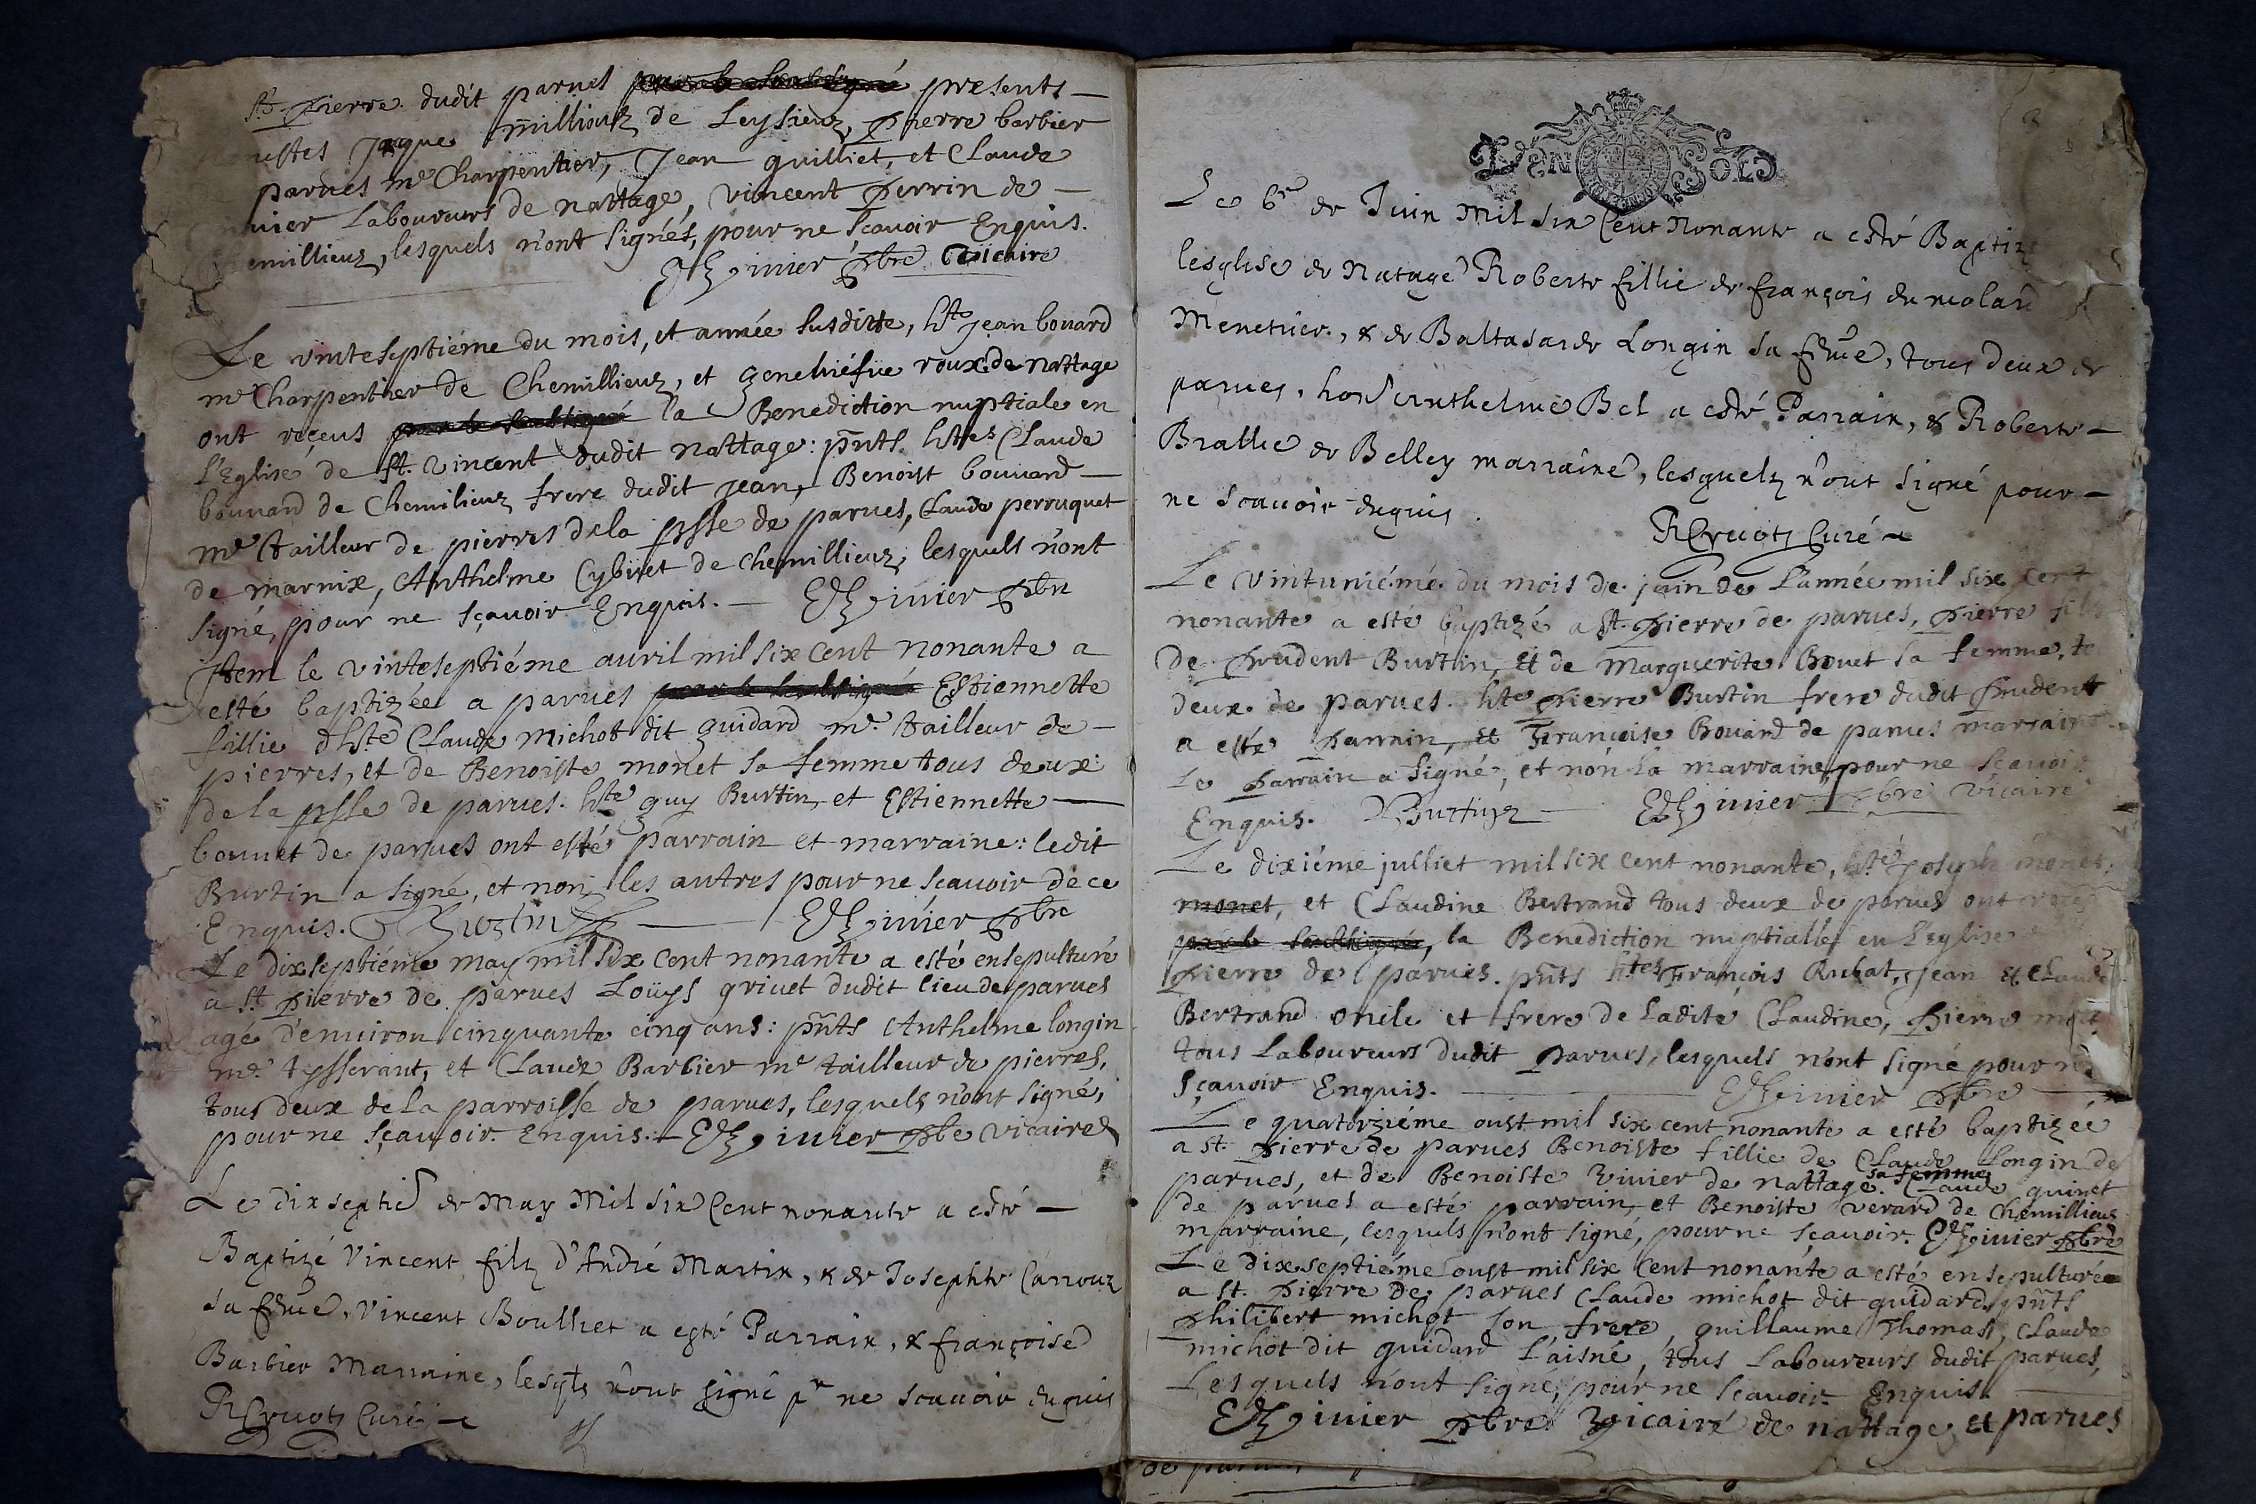 st. pierre dudit parues par le soubsigné presents
honestes Jaque millioux de Leysieux, pierre barbier
parues me Charpentier, Jean guilliet, et Claude
Laboureurs de nattage, vincent perrin de
chemillieux, lesquels n'ont signés, pour ne scauoir Enquis.
viuier pbre Vicaire
Le vinteseptiéme du mois, et année susditte, hste jean bouard
me Charpentier de Chemillieux, et geneuiéfue roux de nattage
ont reçeus par le soubsigné la Benediction nuptiale en
l'Eglise de st. Vincent dudit nattage: pnts. hstes Claude
bouuard de Chemilieux frere dudit jean, Benoist bouuard
me tailleur de pierres de la psse de parues, Claude perruquet
de marnix, Anthelme Cybuet de Chemillieux, lesquels n'ont
signé, pour ne sçauoir Enquis. viuier pbre
Item le vinteseptiéme auril mil six cent nonante a
esté baptizée a parues par le soubsigné Estiennette
fillie d'hste Claude michot dit guidard me. tailleur de
pierres, et de Benoiste monet sa femme tous deux
de la psse de parues. hste guy Burtin, et Estiennette
bouuet de parues ont esté parrain et marraine: ledit
Burtin a signé, et non les autres pour ne scauoir de ce
Enquis. Burtin viuier pbre
Le dixseptiéme may mil six cent nonante a esté ensepulturé
a st. pierre de parues Loüys griuet dudit lieu de parues
agé d'enuiron cinquante cinq ans: pnts Anthelme longin
me. tysserant, et Claude Barbier me tailleur de pierres,
tous deux de la parroisse de parues, lesquels n'ont signé,
pour ne sçauoir Enquis. viuier pbre vicaire
Le dix septie de May Mil six Cent nonante a esté
Baptizé Vincent filz d'André Martin, & de Josephte Carrouz
sa fême, Vincent Boulliet a esté Parrain, & françoise
Barbier Marraine, lesqls n'ont signé pr ne scauoir enquis
RCruotz Curé
DEN SOLD
Le 6e de Juin Mil six Cent Nonante a esté Baptizé
lesglise de Natage Roberte fillie de françois du molard
Menetrier, & de Baltasarde Longin sa fême, tous deux de
parues, hon Anthelme Bel a esté Parrain, & Roberte
Brallie de Belley marraine, lesquelz n'ont signé pour
ne scauoir enquis.
RCruotz Curé
Le vintuniéme du mois de juin de l'année mil six cent
nonante a esté baptizé a st. pierre de parues, pierre fils
de prudent Burtin, et de Marguerite Bouet sa femme,
deux de parues. hste pierre Burtin frere dudit prudent
a esté parrain, et Françoise Bouard de parues marraine
Le parrain a signé, et non la marraine pour ne scauoir
Enquis. Burtin viuier pbre vicaire
Le dixiéme julliet mil six cent nonante, hste Joseph monet
monet, et Claudine Bertrand tous deux de parues ont receu
par le soubsigné, la Benediction nuptialle en l'Eglise
pierre de parues. pnts hstes François Rubat, jean et Claude
Bertrand oncle et frere de ladite Claudine, pierre
tous Laboureurs dudit parues, lesquels n'ont signé pour ne
sçauoir Enquis. viuier pbre
Le quatorziéme oust mil six cent nonante a esté baptizée
a st. pierre de parues Benoiste fillie de Claude Longin de
parues, et de Benoiste viuier de nattage sa femme. Claude guinet
de parues a esté parrain, et Benoiste verard de Chemillieux
marraine, lesquels n'ont signé, pour ne sçauoir. viuier pbre
Le dixseptiéme oust mil six cent nonante a esté ensepulturée
a st. pierre de parues Claude michot dit guidard, pnts
philibert michot son frere, guillaume Thomas, Claude
michot dit guidard l'aisné, tous Laboureurs dudit parues,
Lesquels n'ont signé, pour ne scauoir Enquis.
viuier pbre Vicaire de nattage et parues